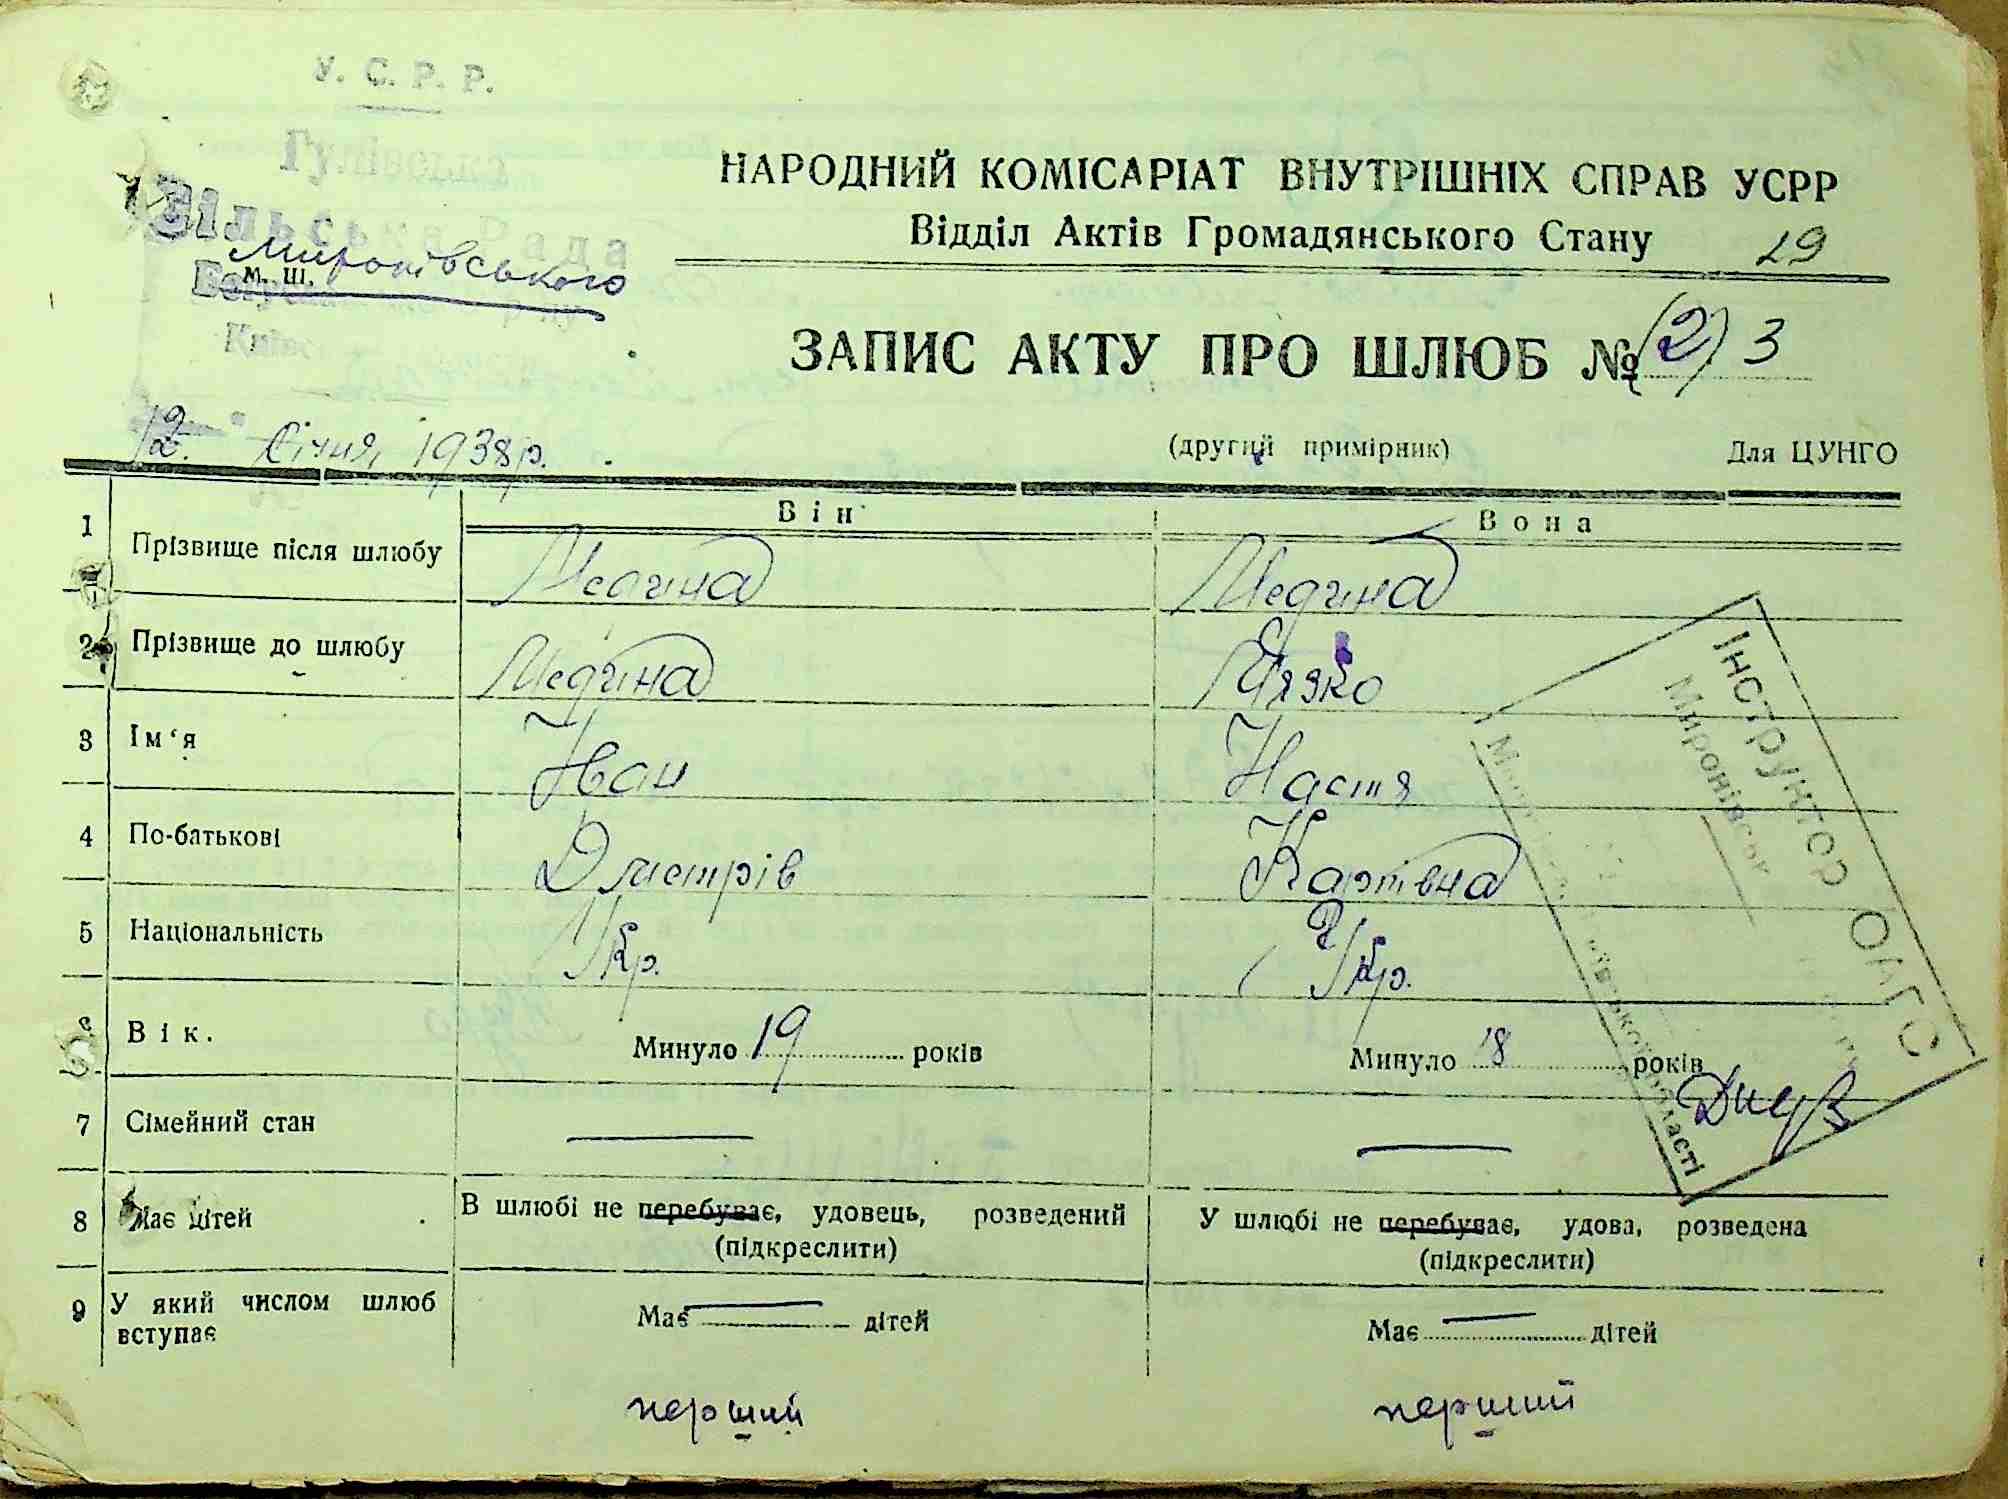 У. С. Р. Р.
Гулівська
Сільська Рада
Миронівського
М. Ш.
НАРОДНИЙ КОМІСАРІАТ ВНУТРІШНІХ СПРАВ УСРР
Відділ Актів Громадянського Стану 19
ЗАПИС АКТУ ПРО ШЛЮБ № (2) 3
12. Січня, 1938 р.
(другий примірник) Для ЦУНГО
Він Вона
1 Прізвище після шлюбу Медина Медина
2 Прізвище до шлюбу Медина
3 Ім'я Іван Настя
4 По-батькові Дмитрів Карпівна
5 Національність Укр. Укр.
6 Вік. Минуло 19 років Минуло 18 років
7 Сімейний стан — —
8 Має дітей В шлюбі не перебуває, удовець, розведений У шлюбі не перебуває, удова, розведена
(підкреслити) (підкреслити)
9 У який числом шлюб вступає Має — дітей Має — дітей
перший перший
Інструктор ОАГС
Миронівськ
області